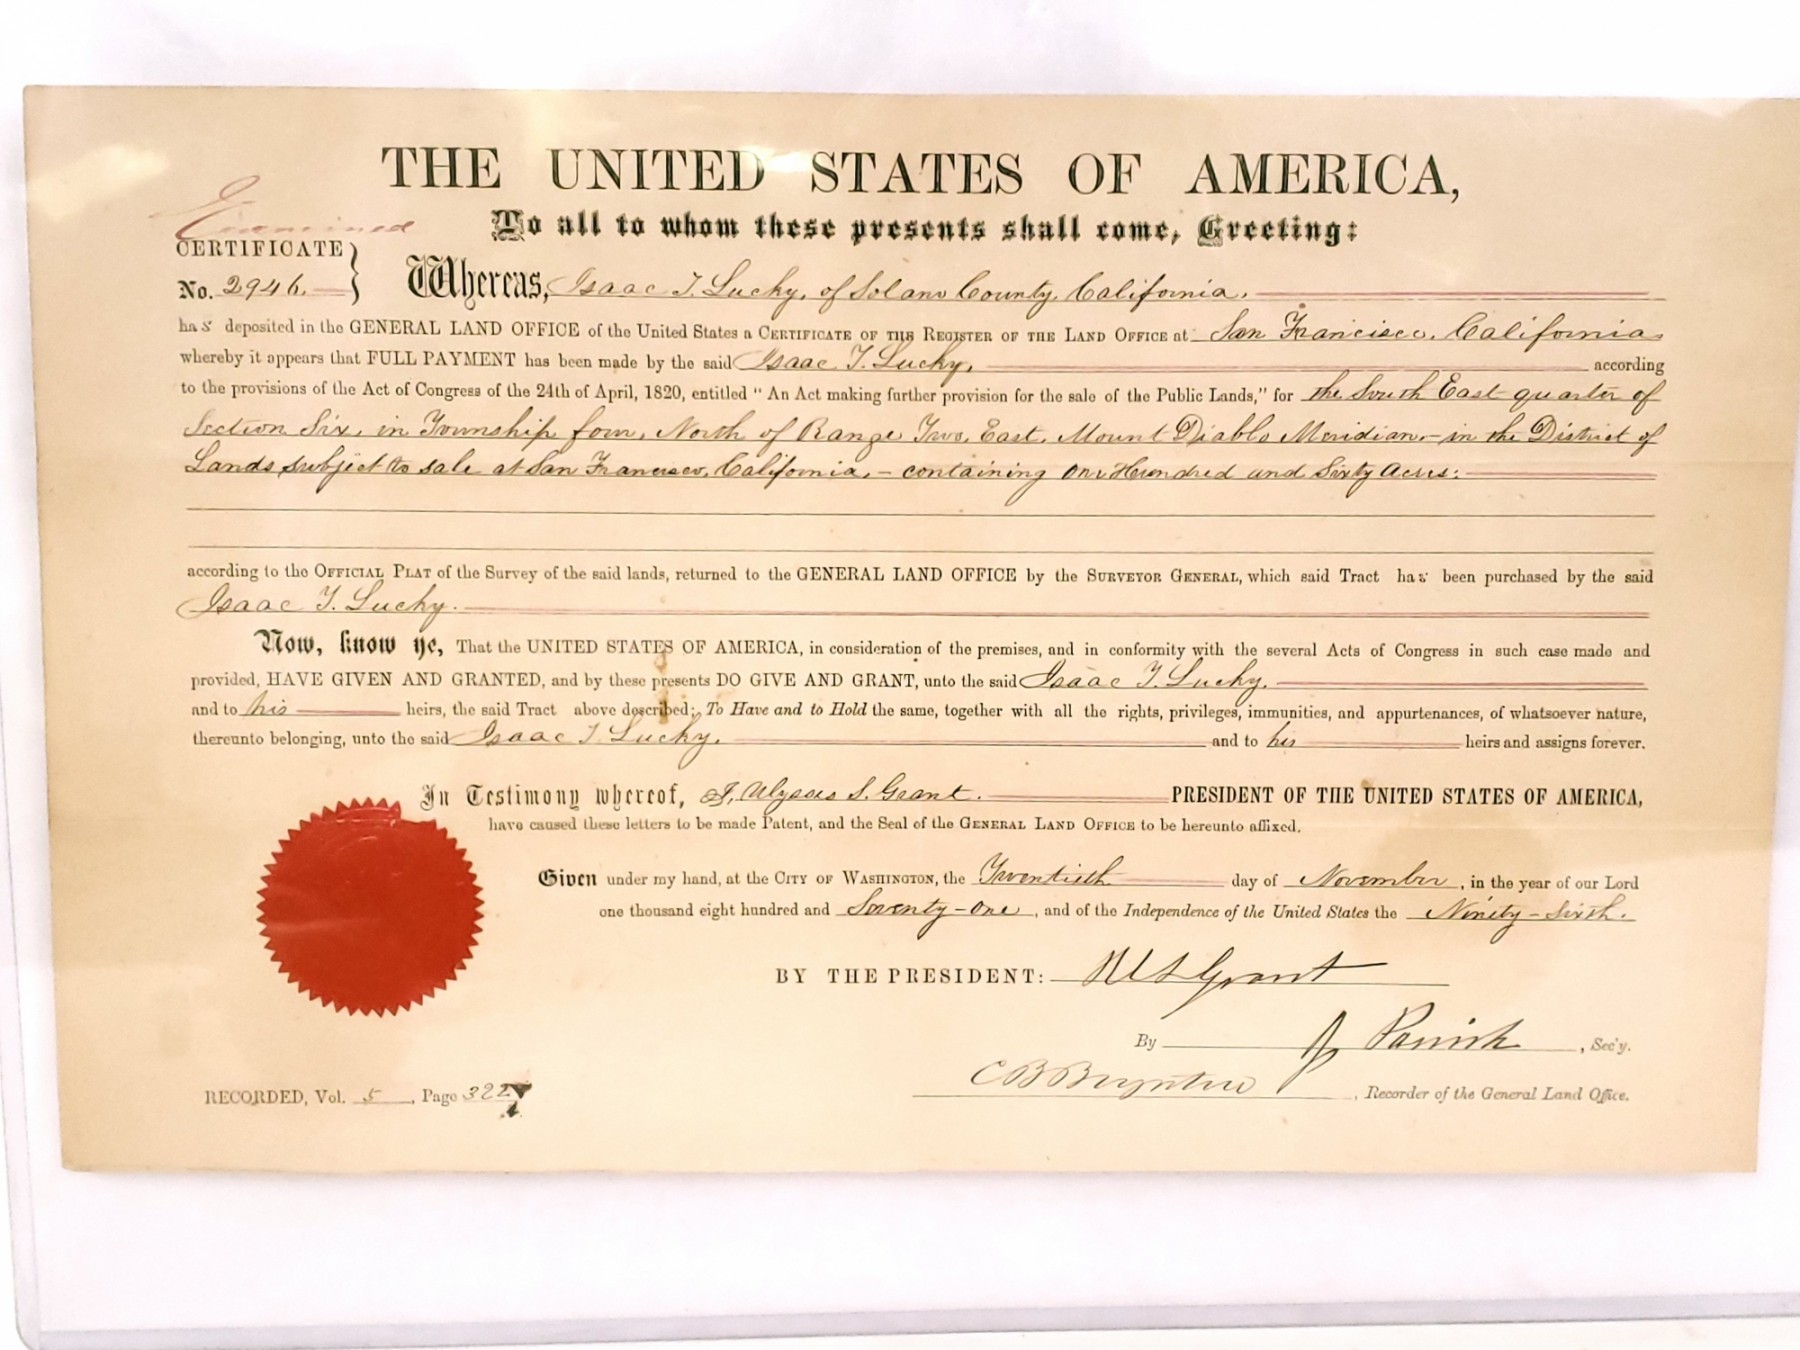 THE UNITED STATES OF AMERICA,
To all to whom these presents shall come, Greeting:
Examined
CERTIFICATE
No. 2946.
Whereas, Isaac T. Lucky, of Solano County, California.
has deposited in the GENERAL LAND OFFICE of the United States a CERTIFICATE OF THE REGISTER OF THE LAND OFFICE at San Francisco, California
whereby it appears that FULL PAYMENT has been made by the said Isaac T. Lucky, according
to the provisions of the Act of Congress of the 24th of April, 1820, entitled "An Act making further provision for the sale of the Public Lands," for the South East quarter of
Section Six, in Township four, North of Range Two, East, Mount Diablo Meridian, - in the District of
Lands subject to sale at San Francisco, California, - containing One Hundred and Sixty Acres:
according to the OFFICIAL PLAT of the Survey of the said lands, returned to the GENERAL LAND OFFICE by the SURVEYOR GENERAL, which said Tract has been purchased by the said
Isaac T. Lucky.
Now, know ye, That the UNITED STATES OF AMERICA, in consideration of the premises, and in conformity with the several Acts of Congress in such case made and
provided, HAVE GIVEN AND GRANTED, and by these presents DO GIVE AND GRANT, unto the said Isaac T. Lucky.
and to his heirs, the said Tract above described; To Have and to Hold the same, together with all the rights, privileges, immunities, and appurtenances, of whatsoever nature,
thereunto belonging, unto the said Isaac T. Lucky, and to his heirs and assigns forever.
In Testimony whereof, I, Ulysses S. Grant. PRESIDENT OF THE UNITED STATES OF AMERICA,
have caused these letters to be made Patent, and the Seal of the GENERAL LAND OFFICE to be hereunto affixed.
Given under my hand, at the CITY OF WASHINGTON, the Twentieth day of November, in the year of our Lord
one thousand eight hundred and Seventy-one, and of the Independence of the United States the Ninety-Sixth.
BY THE PRESIDENT: U S Grant
By J Parrish, Sec'y.
C B Boynton, Recorder of the General Land Office.
RECORDED, Vol. 5, Page 322